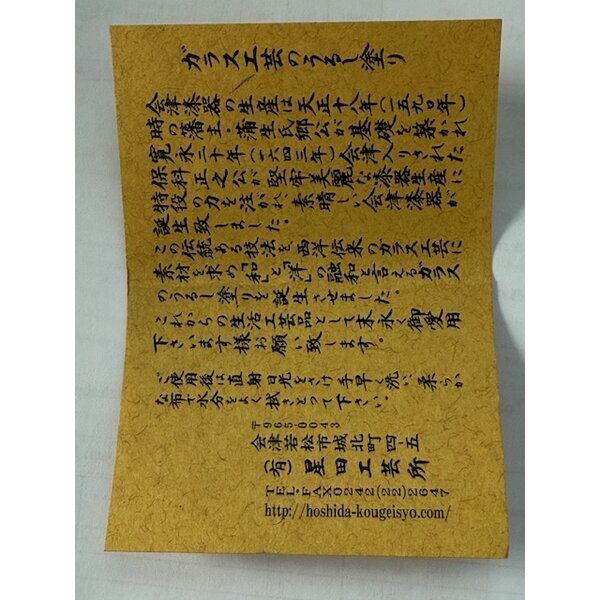 ガラス工芸のうるし塗り
会津漆器の生産は天正十八年(一五九〇年)
時の藩主・蒲生氏郷公が基礎を築かれ
寛永二十年(一六四三年)会津入りされた
保科正之公が堅牢美麗な漆器生産に
特段の力を注がれ、素晴しい会津漆器が
誕生致しました。
この伝統ある技法を、西洋伝来のガラス工芸に
素材を求め「和」と「洋」の融和と言えるガラス
のうるし塗りを誕生させました。
これからの生活工芸品として末永く御愛用
下さいます様お願い致します。
ご使用後は直射日光をさけ手早く洗い、柔らか
な布で水分をよく拭きとって下さい。
〒965-0043
会津若松市城北町四-五
(有)星田工芸所
TEL・FAX0242(22)2647
http://hoshida-kougeisyo.com/